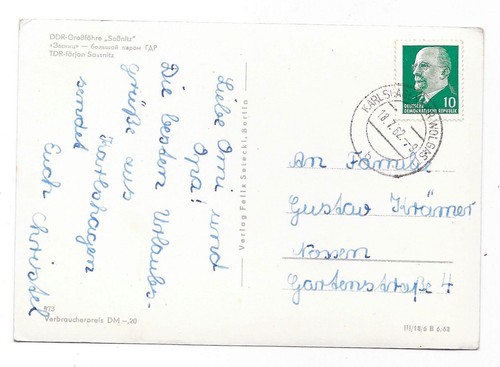 DDR-Großfähre „Saßnitz"
TDR-färjan Sassnitz
Liebe Omi und
Opa!
Die besten Urlaubs-
grüße aus
Karlshagen
sendet
Euch Christel
Verlag Felix Setecki, Berlin
973
Verbraucherpreis DM -,20
DEUTSCHE
DEMOKRATISCHE REPUBLIK
10
18.7.62
An Familie
Gustav Krämer
Nossen
Gartenstraße 4
III/18/6 B 6/62